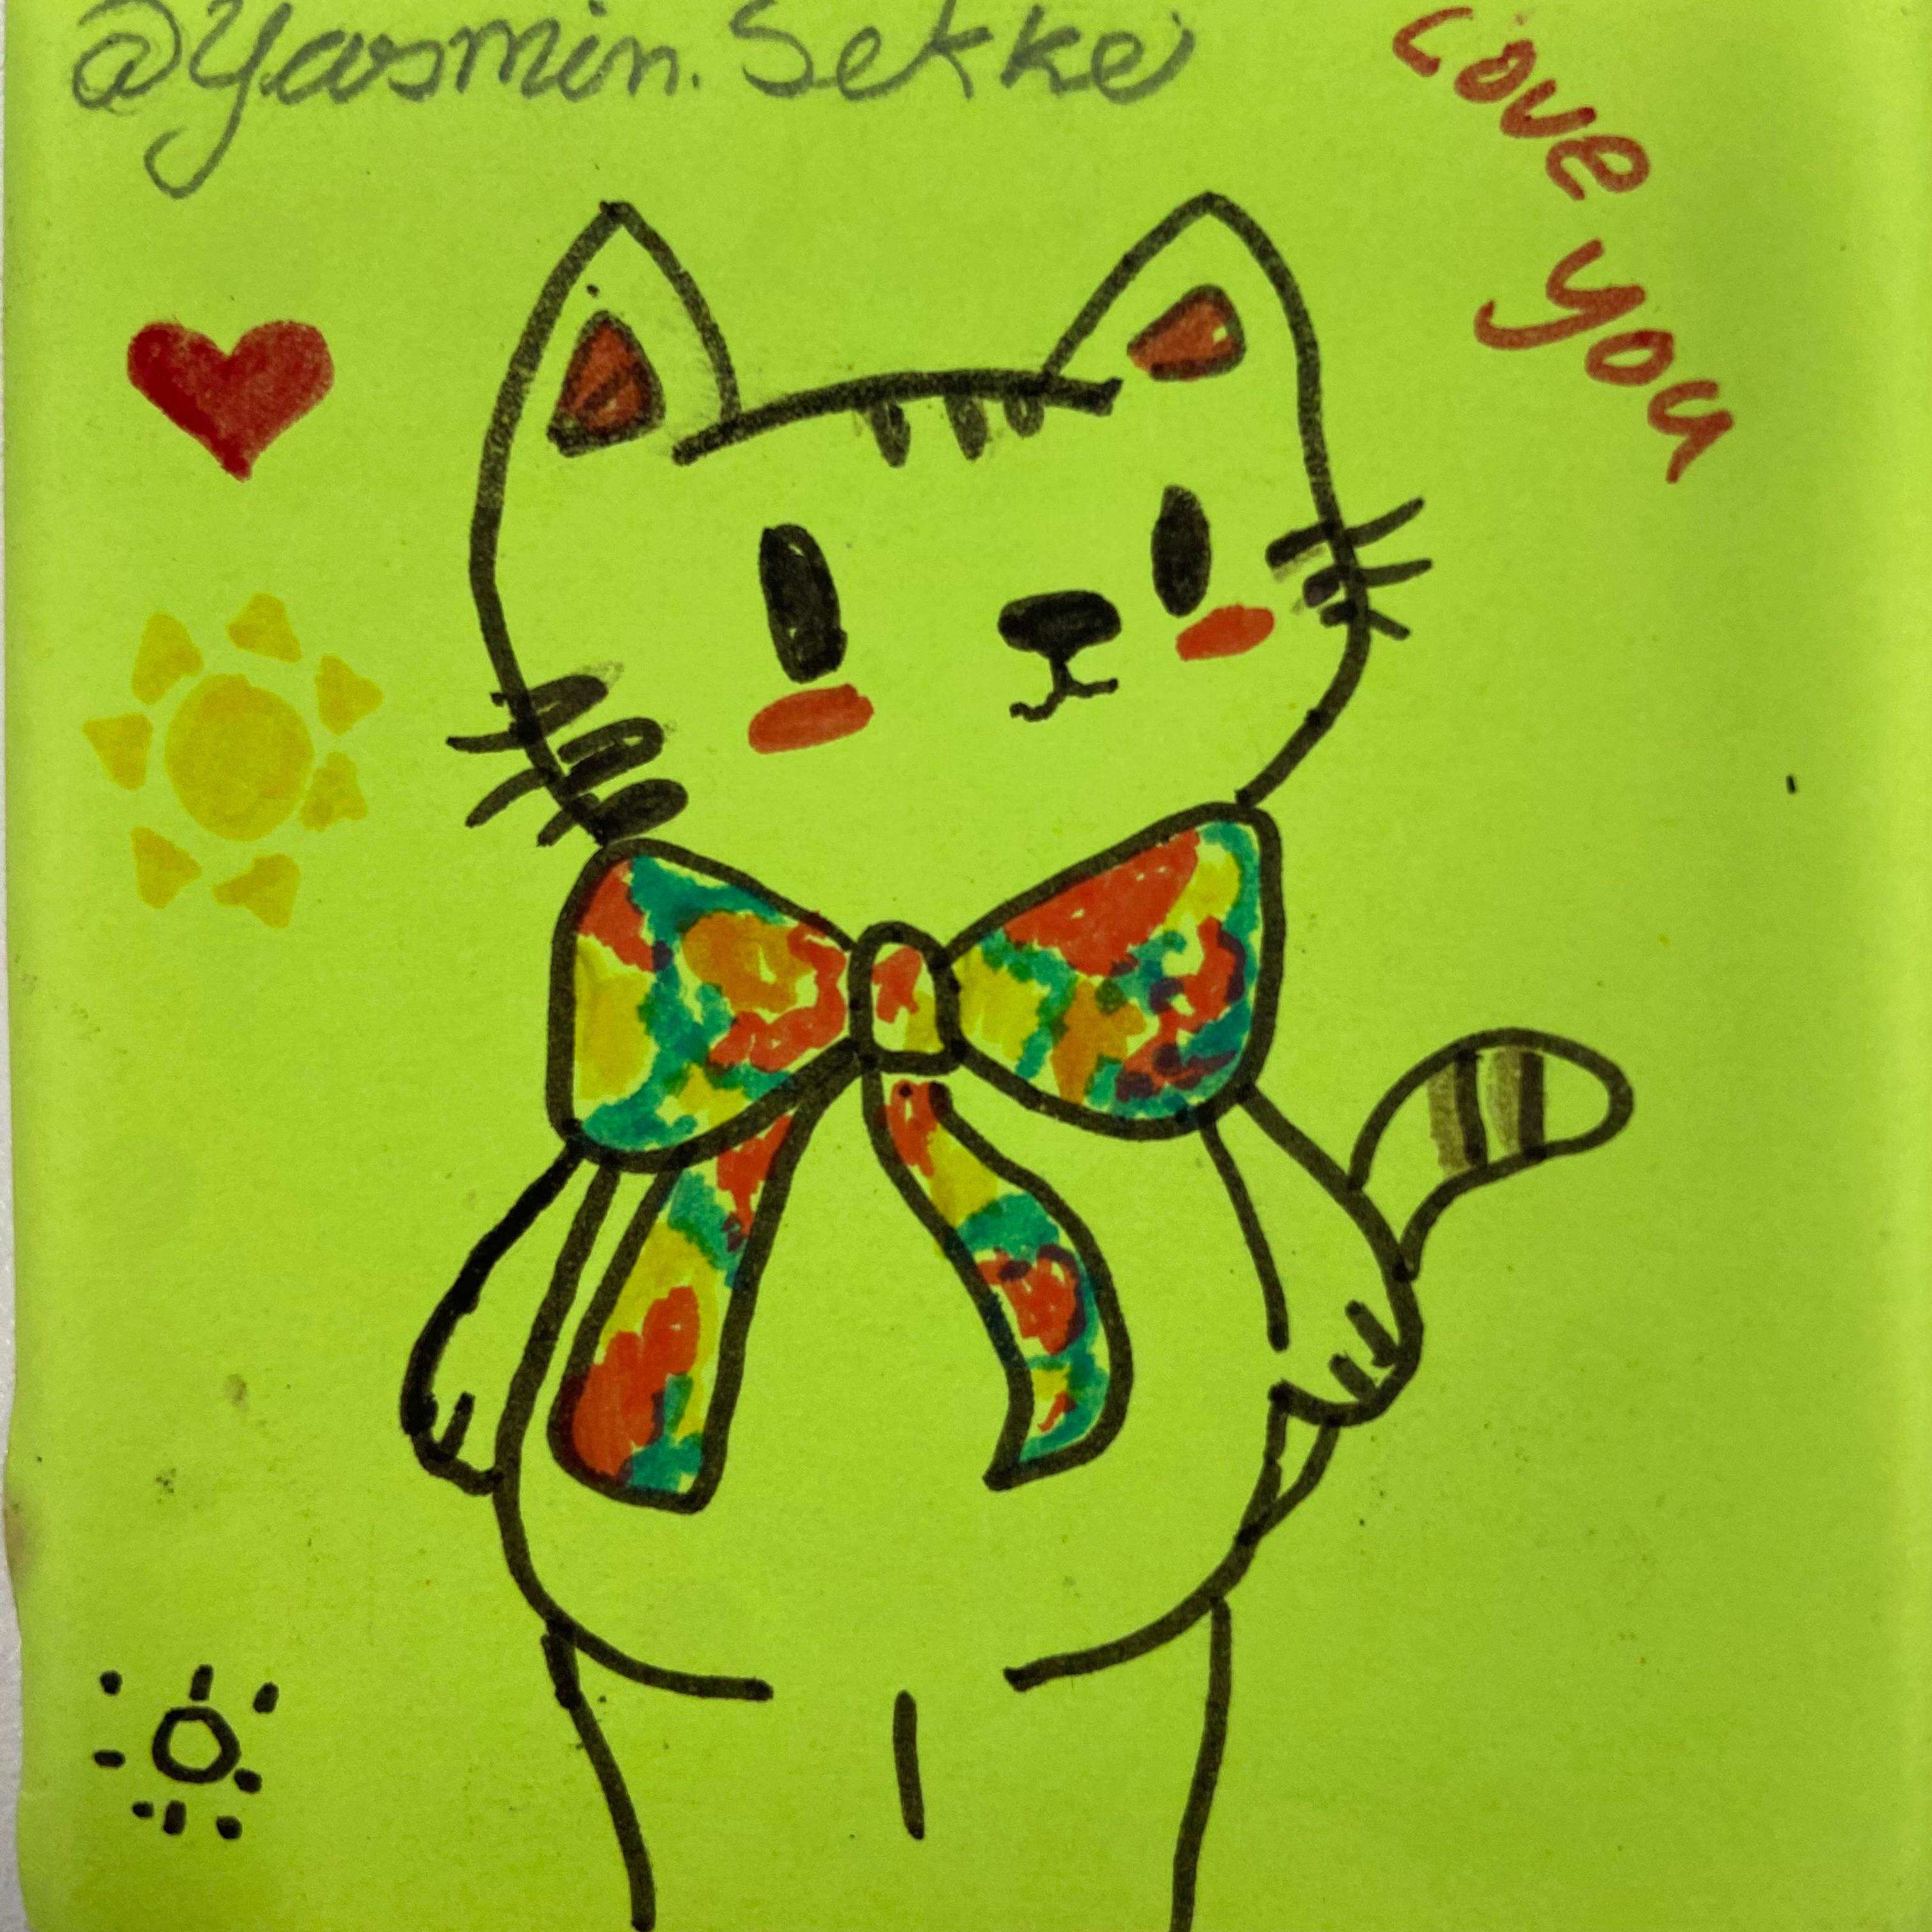 @Yasmin.Sekke
Love you